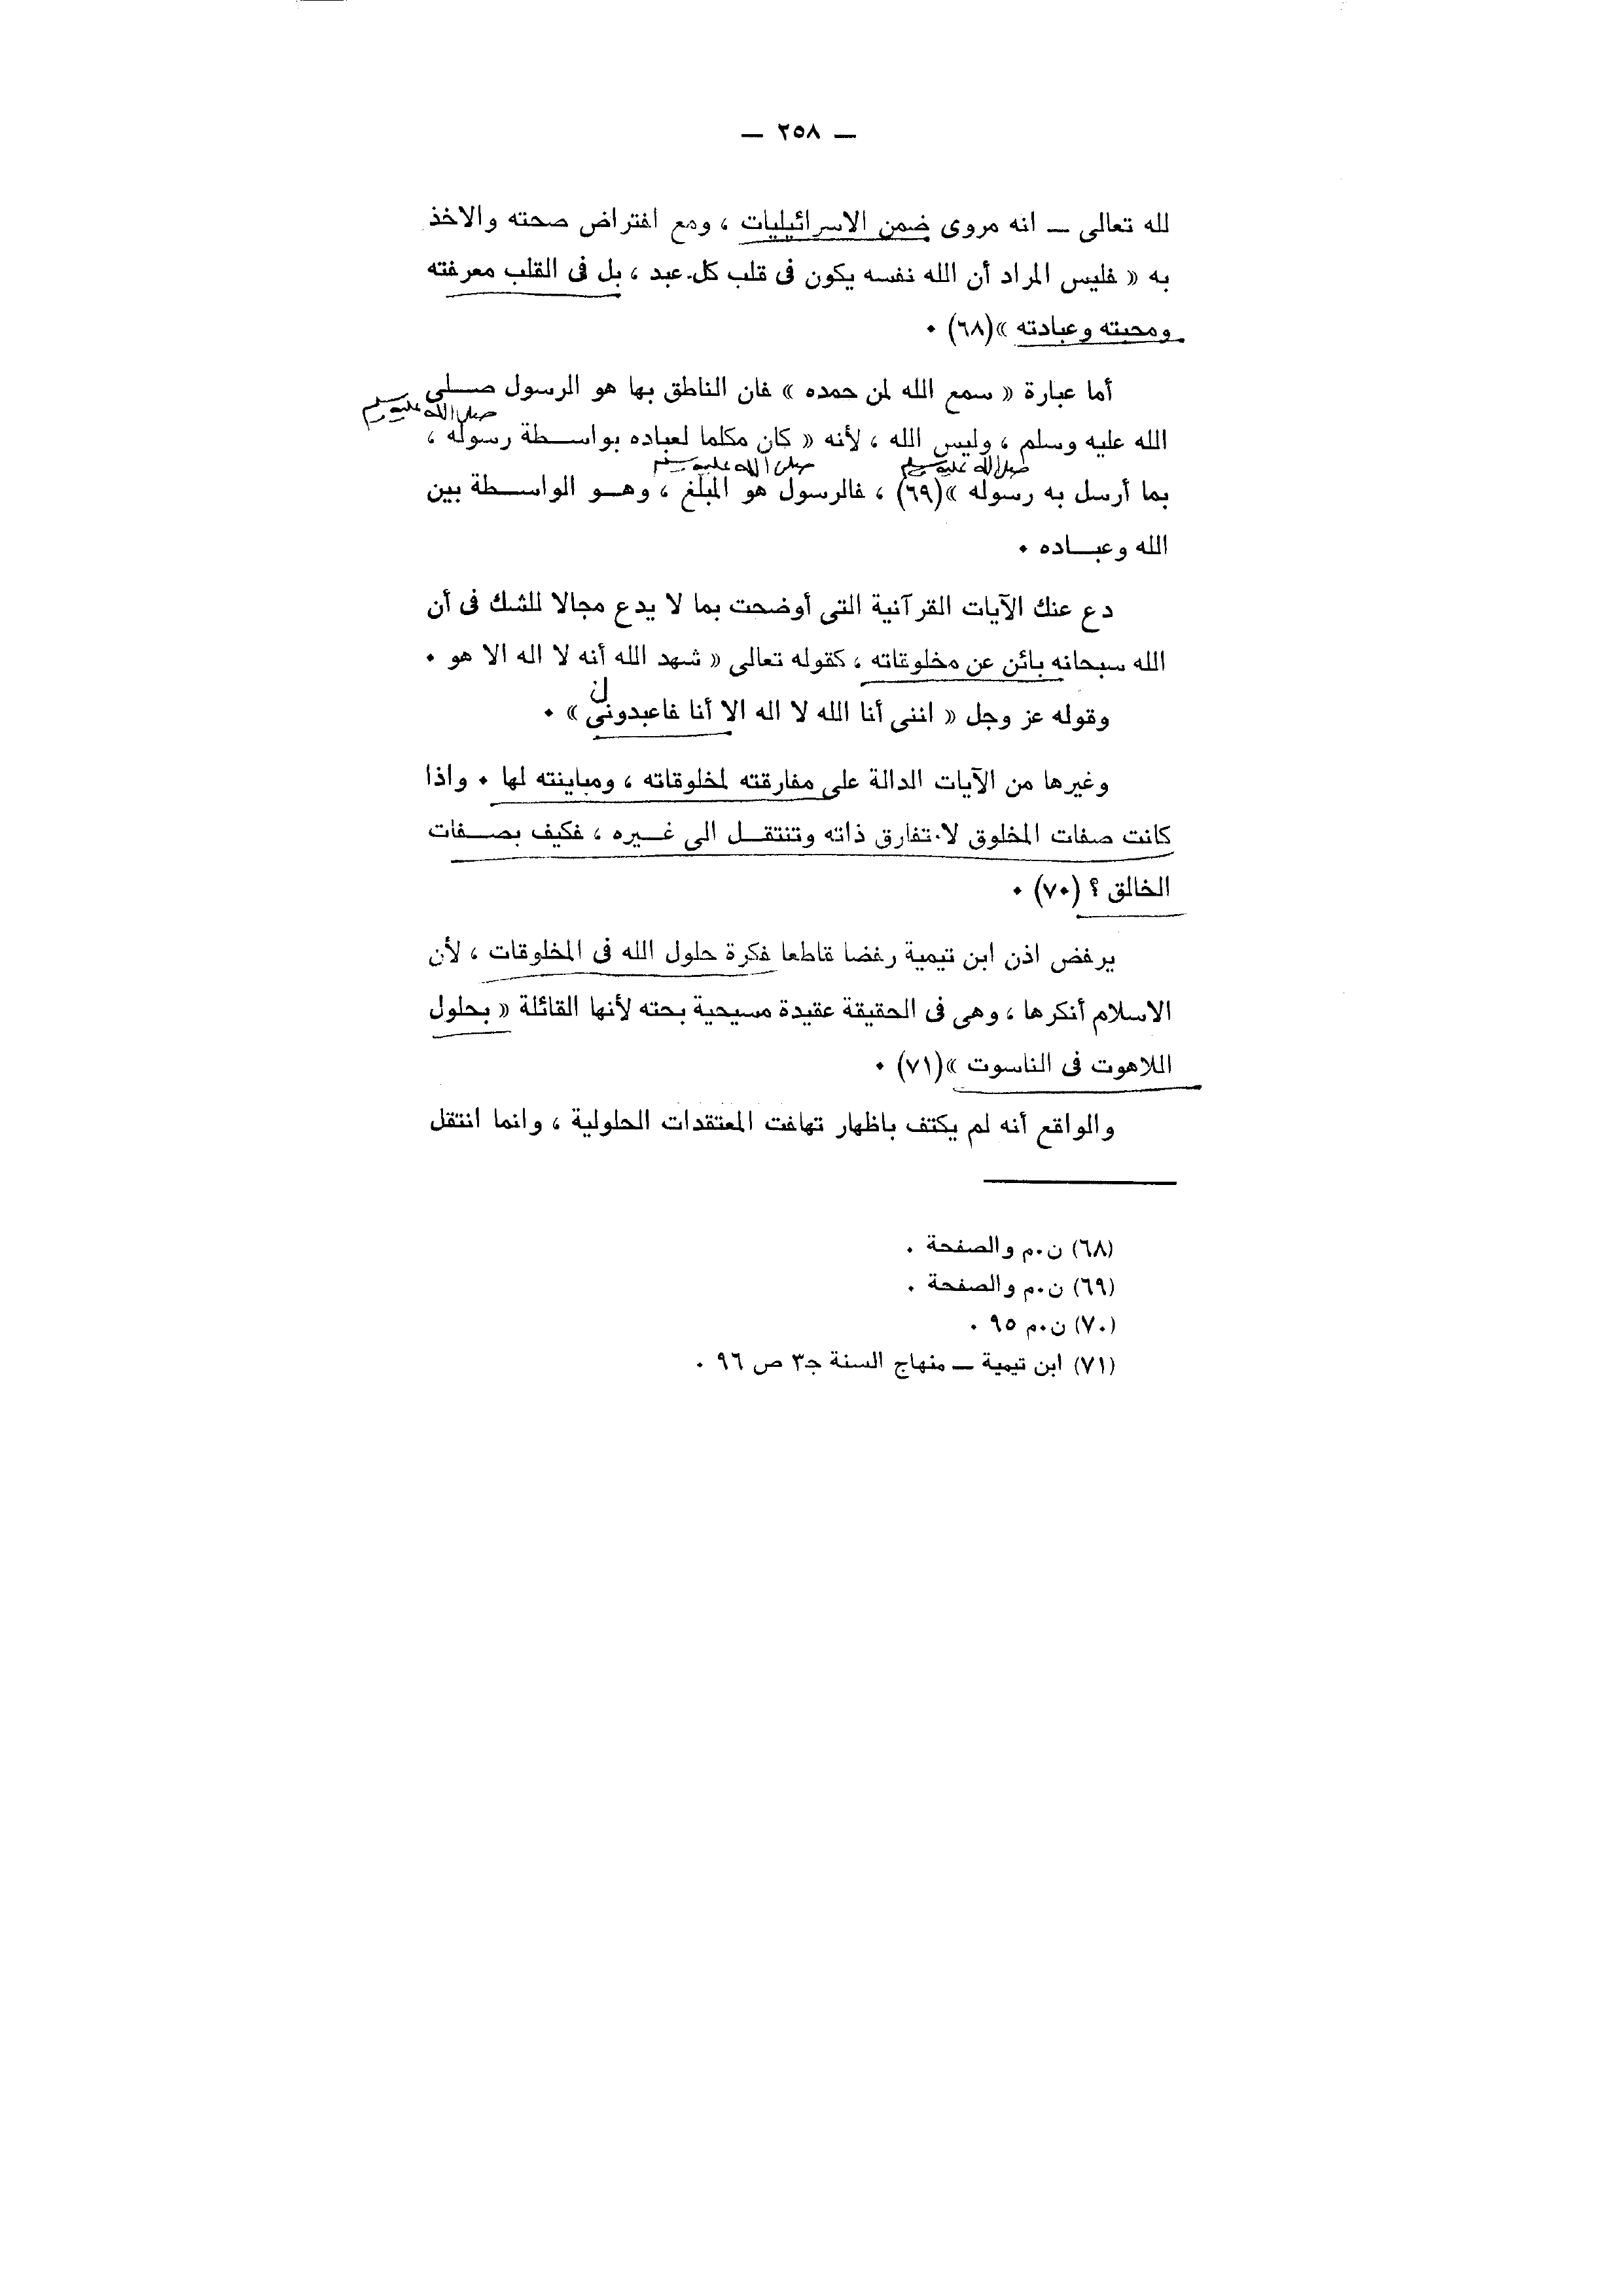 — ٢٥٨ —
لله تعالى — انه مروى ضمن الاسرائيليات ، ومع افتراض صحته والاخذ
به « فليس المراد أن الله نفسه يكون فى قلب كل عبد ، بل فى القلب معرفته
ومحبته وعبادته »(٦٨) ٠
أما عبارة « سمع الله لمن حمده » فان الناطق بها هو الرسول صلى
صلى الله عليه وسلم
الله عليه وسلم ، وليس الله ، لأنه « كان مكلما لعباده بواسطة رسوله ،
صلى الله عليه وسلم صلى الله عليه وسلم
بما أرسل به رسوله »(٦٩) ، فالرسول هو المبلغ ، وهو الواسطة بين
الله وعباده ٠
دع عنك الآيات القرآنية التى أوضحت بما لا يدع مجالا للشك فى أن
الله سبحانه بائن عن مخلوقاته ، كقوله تعالى « شهد الله أنه لا اله الا هو ٠
ن
وقوله عز وجل « اننى أنا الله لا اله الا أنا فاعبدونى » ٠
وغيرها من الآيات الدالة على مفارقته لمخلوقاته ، ومباينته لها ٠ واذا
كانت صفات المخلوق لا تفارق ذاته وتنتقل الى غيره ، فكيف بصفات
الخالق ؟ (٧٠) ٠
يرفض اذن ابن تيمية رفضا قاطعا فكرة حلول الله فى المخلوقات ، لأن
الاسلام أنكرها ، وهى فى الحقيقة عقيدة مسيحية بحته لأنها القائلة « بحلول
اللاهوت فى الناسوت »(٧١) ٠
والواقع أنه لم يكتف باظهار تهافت المعتقدات الحلولية ، وانما انتقل
(٦٨) ن٠م والصفحة ٠
(٦٩) ن٠م والصفحة ٠
(٧٠) ن٠م ٩٥ ٠
(٧١) ابن تيمية — منهاج السنة ج٣ ص ٩٦ ٠